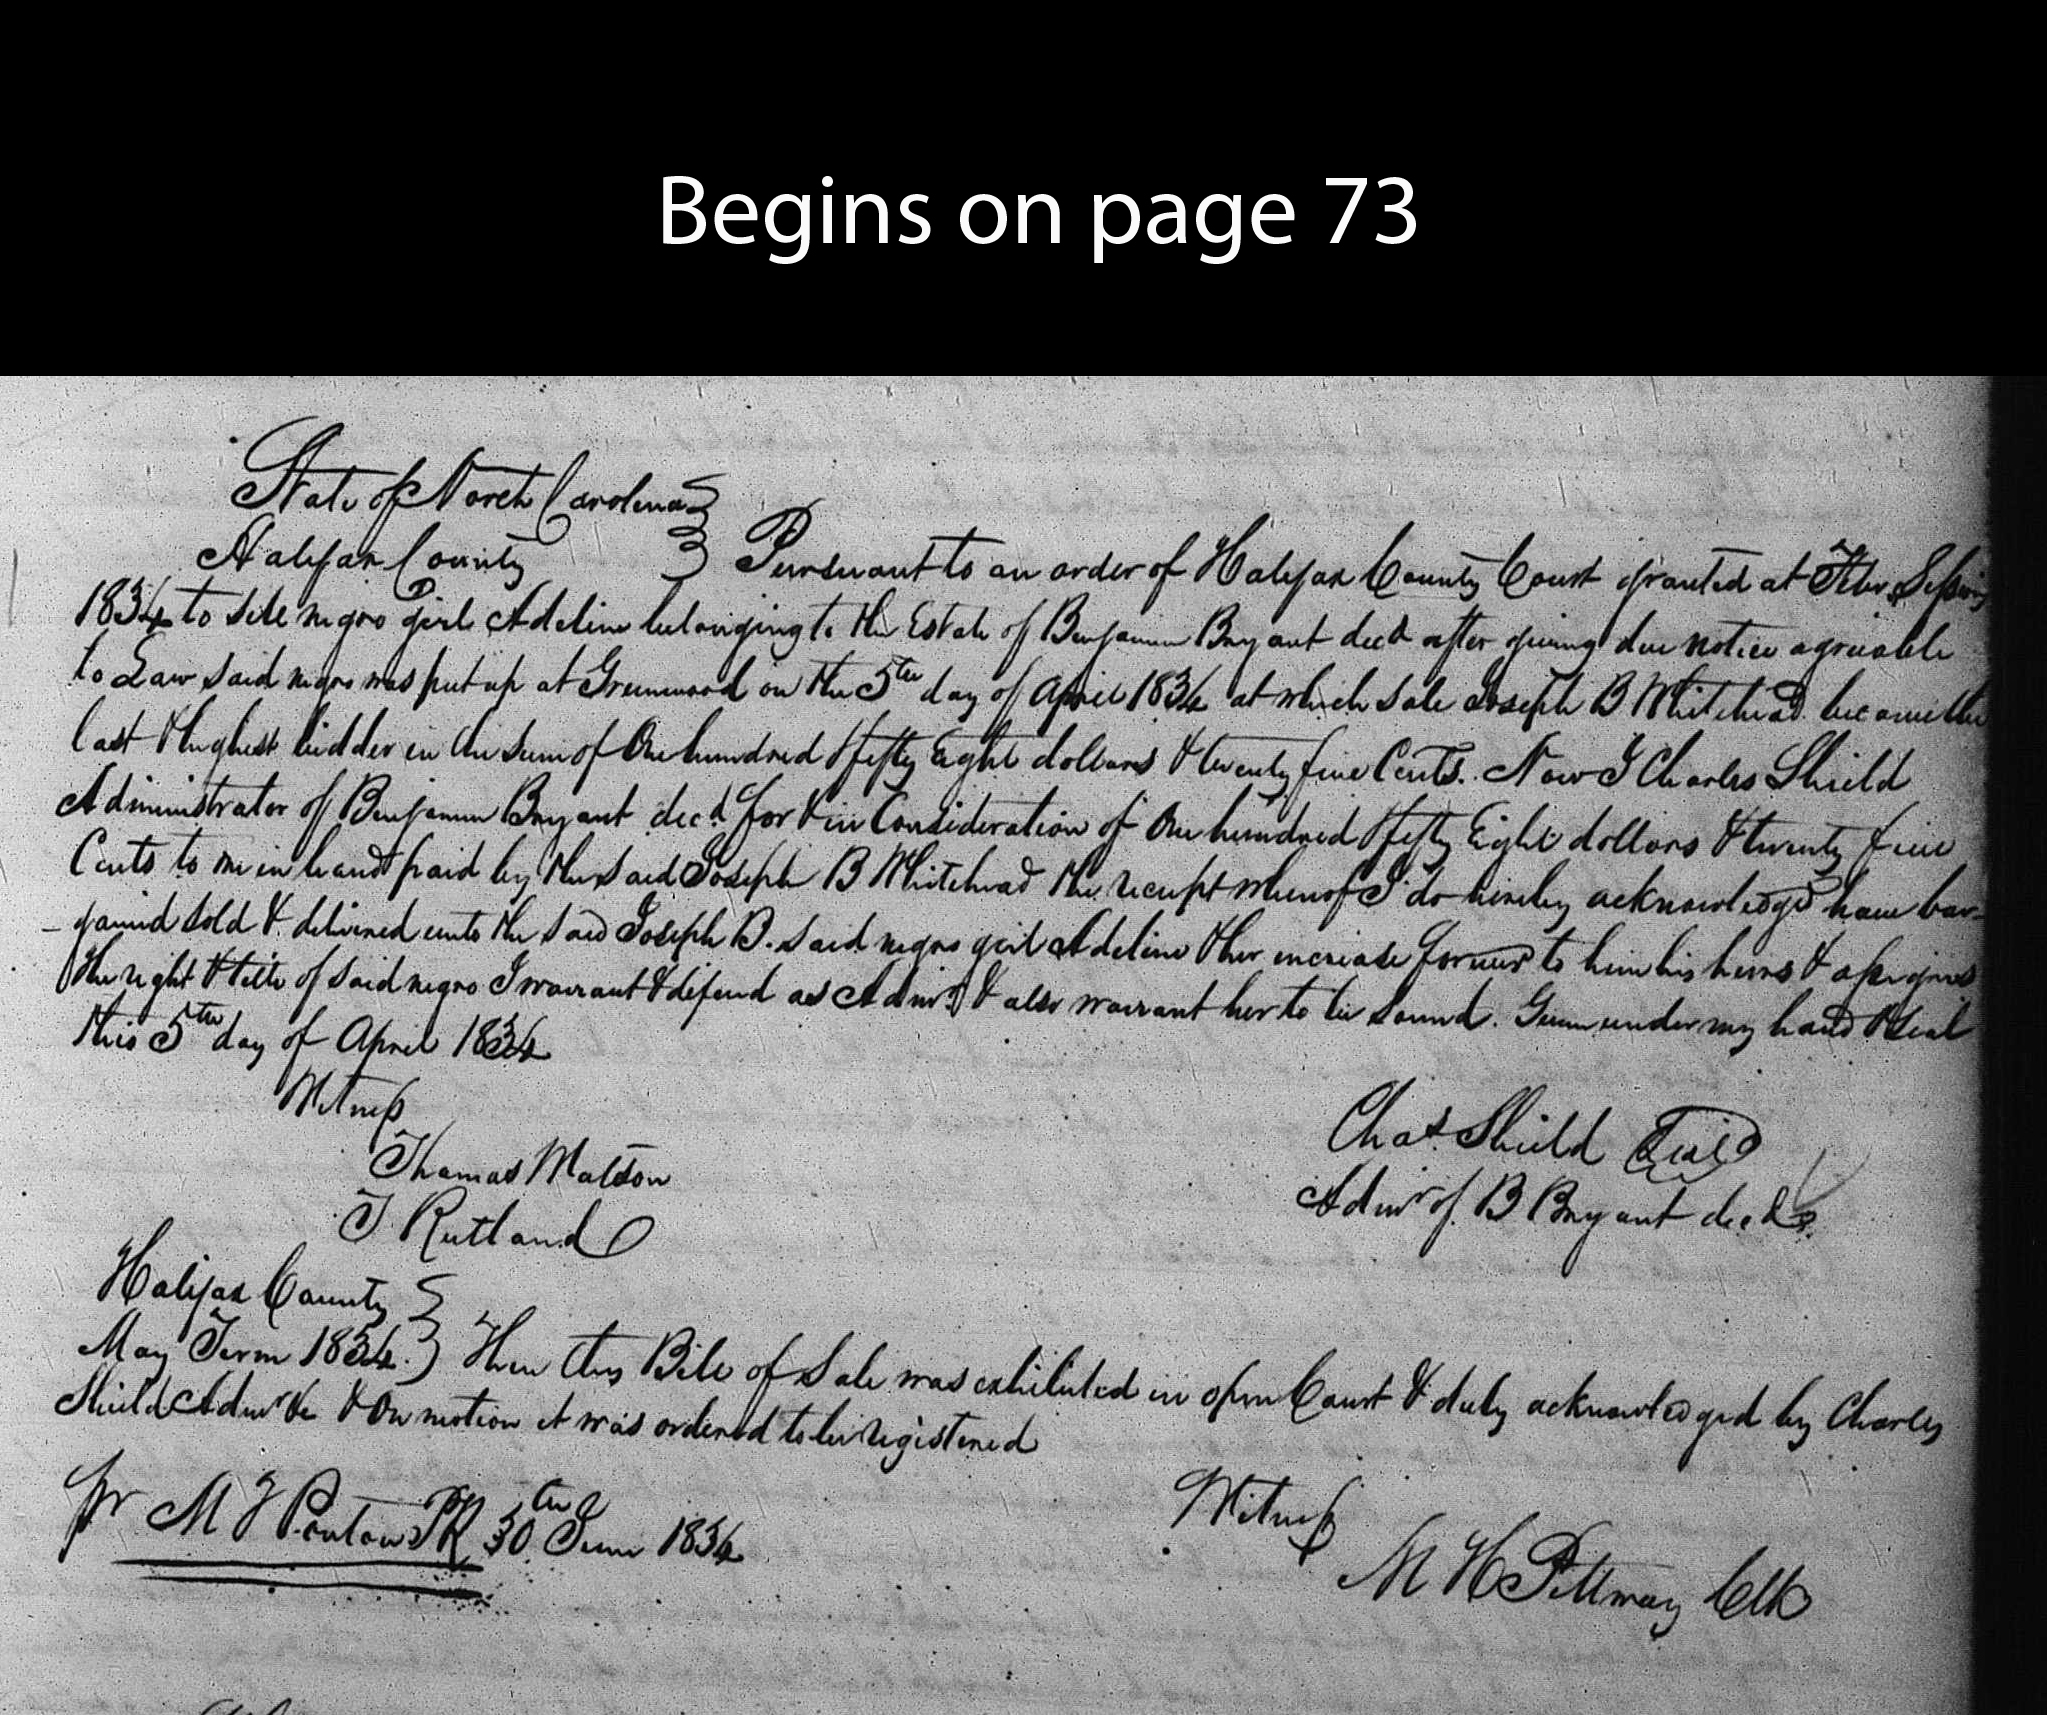 Begins on page 73
State of North Carolina
Halifax County Pursuant to an order of Halifax County Court granted at Feby Session
1834 to sell negro girl Adeline belonging to the Estate of Benjamin Bryant decd after giving due notice agreeable
to Law said negro was put up at Greenwood on the 5th day of April 1834 at which sale Joseph B Whitehead became the
last & highest bidder in the sum of One hundred & fifty Eight dollars & twenty five Cents. Now I Charles Shield
Administrator of Benjamin Bryant decd for & in Consideration of One hundred & fifty Eight dollars & twenty five
Cents to me in hand paid by the said Joseph B Whitehead the receipt whereof I do hereby acknowledge have bar-
-gained sold & delivered unto the said Joseph B. said negro girl Adeline & her increase forever to him his heirs & assigns
the right & title of said negro I warrant & defend as Admr. & also warrant her to be sound. Given under my hand & seal
this 5th day of April 1834
Witness
Chas. Shield Seal
Thomas Matson
Admr of B Bryant decd
J Rutland
Halifax County
May Term 1834. Then this Bill of Sale was exhibited in open Court & duly acknowledged by Charles
Shield Admr &c & On motion it was ordered to be registered
Witness
pr M J PR 30th June 1834
M H Pittway Clk